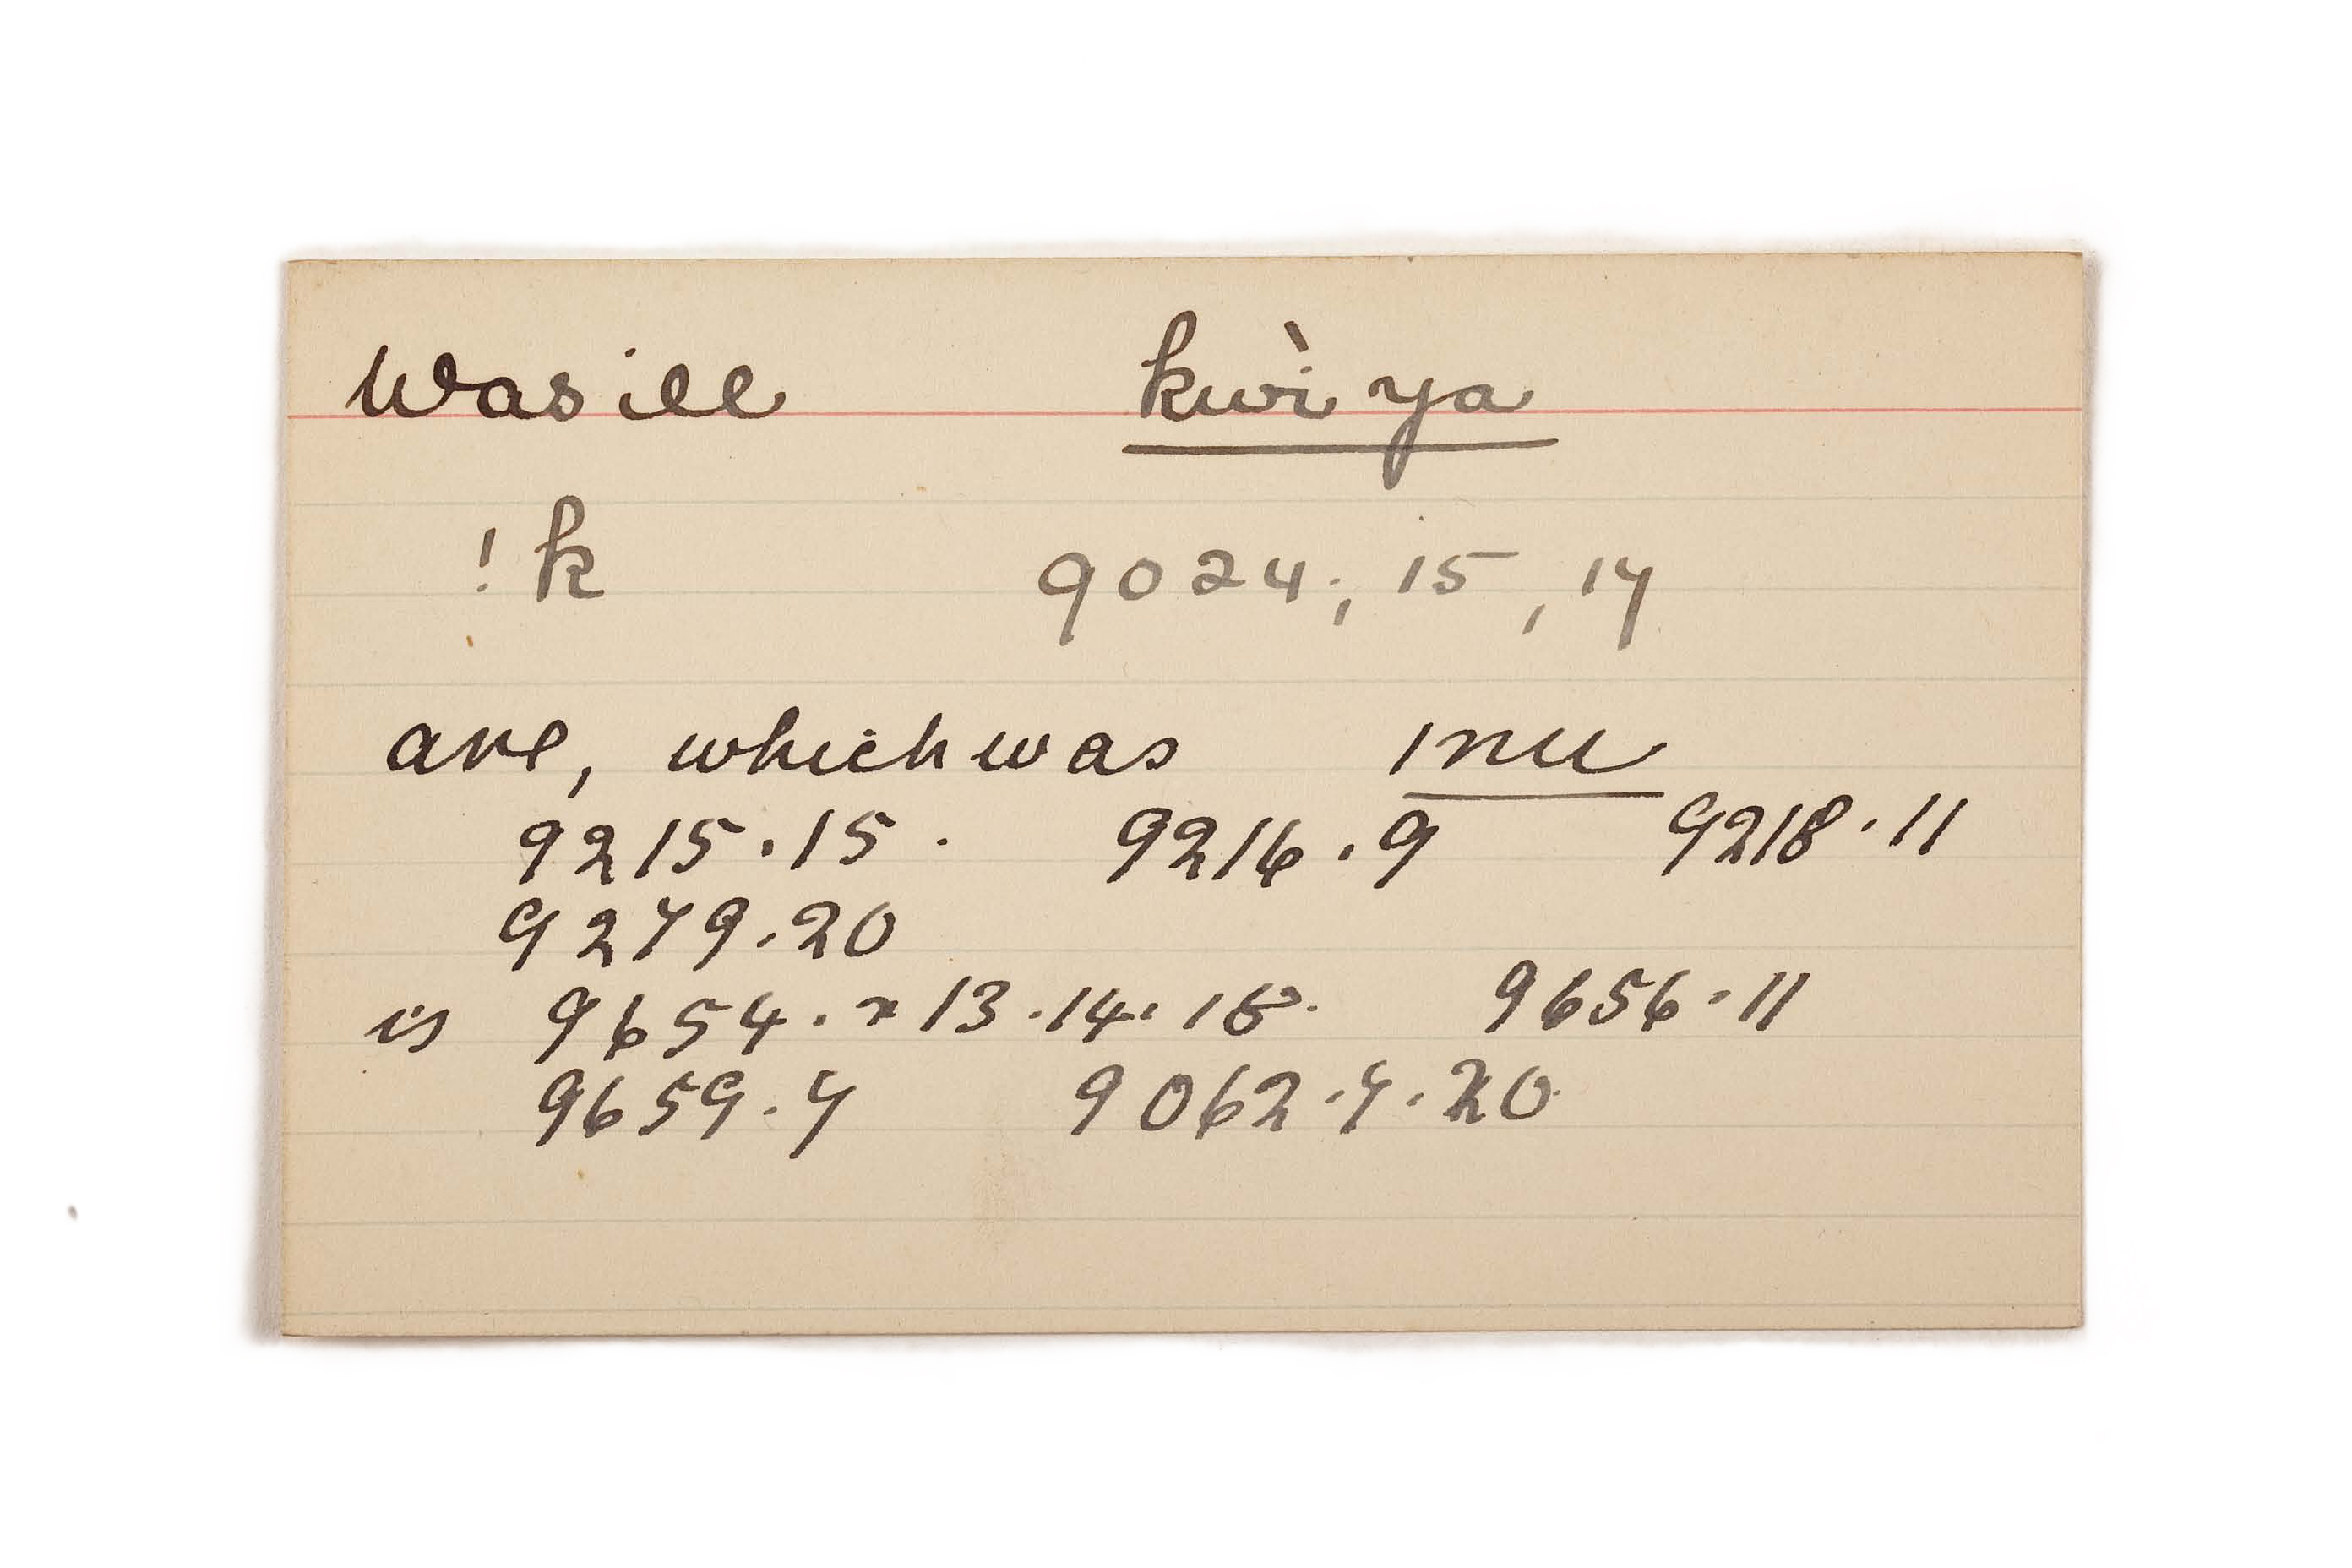 was ill kwì ya
! k 9024;, 15, 17
are, which was ınu
9215.15. 9216.9 9218.11
9279.20
is 9654. 13.14. 9656.11
9659.7 9062.7.20